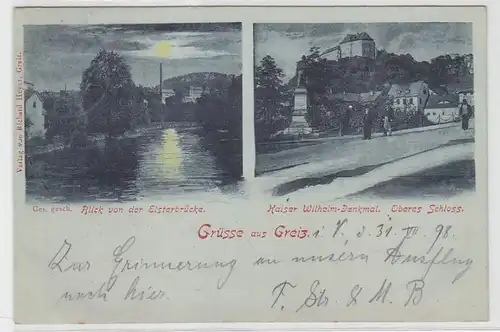 Verlag von Richard Heyer, Greiz.
Ges. gesch. Blick von der Elsterbrücke.
Kaiser Wilhelm-Denkmal. Oberes Schloss.
Grüsse aus Greiz. i. V. d. 31. VII. 98.
Zur Erinnerung an unsern Ausflug
nach hier. F. Str. & M. B